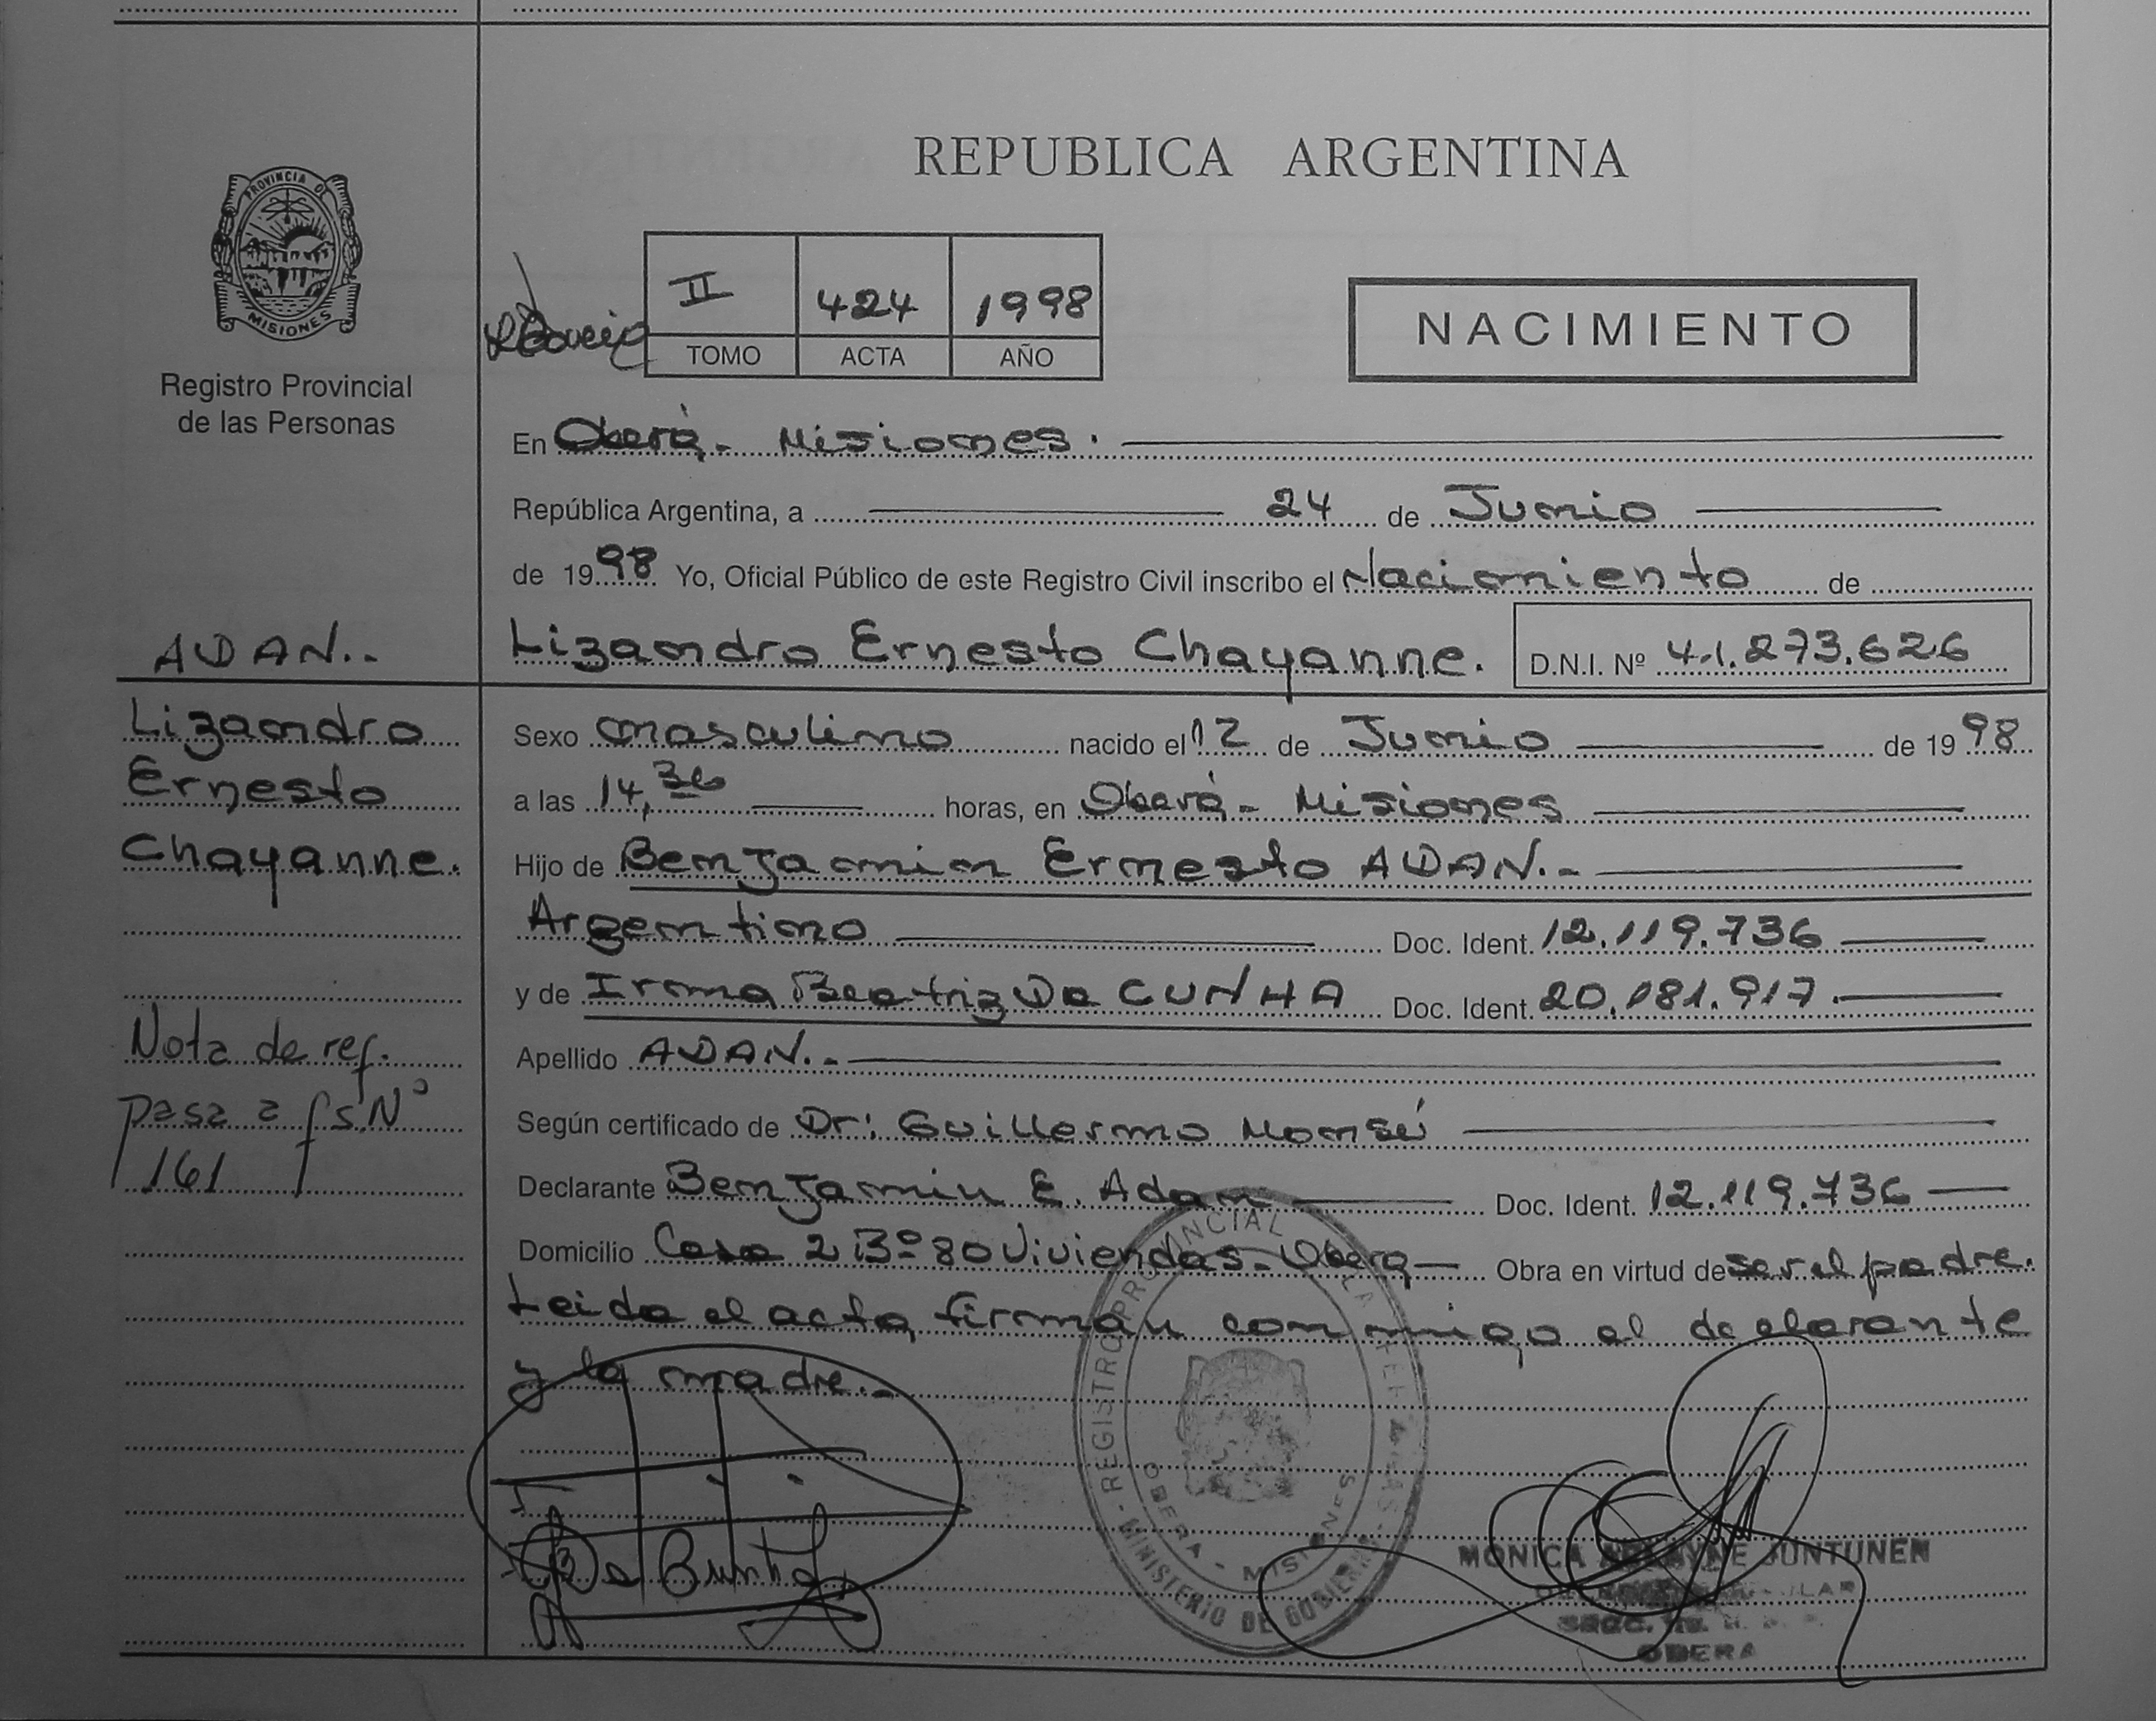 PROVINCIA DE
MISIONES
Registro Provincial
de las Personas
ADAN..-
Lizandro
Ernesto
Chayanne.
Nota de ref.
pasa a fs. Nº
161
REPUBLICA ARGENTINA
II 424 1998
TOMO ACTA AÑO
NACIMIENTO
En Oberá- Misiones.
República Argentina, a 24 de Junio
de 1998 Yo, Oficial Público de este Registro Civil inscribo el Nacimiento de
Lizandro Ernesto Chayanne. D.N.I. Nº 41.273.626
Sexo masculino nacido el 12 de Junio de 1998
a las 14,36 horas, en Oberá- Misiones
Hijo de Benjamin Ernesto ADAN.-
Argentino Doc. Ident. 12.119.736
y de Irma Beatriz Da CUNHA Doc. Ident. 20.181.917.
Apellido ADAN.-
Según certificado de Dr: Guillermo
Declarante Benjamin E. Adan Doc. Ident. 12.119.736
Domicilio Casa 2 Bº 80 Viviendas- Oberá Obra en virtud de ser el padre.
Leida el acta, firman conmigo el declarante
y la madre.-
REGISTRO PROVINCIAL DE LAS PERSONAS
MINISTERIO DE GOBIERNO
OBERA - MISIONES
Da Cunha
MONICA JUNTUNEN
OBERA